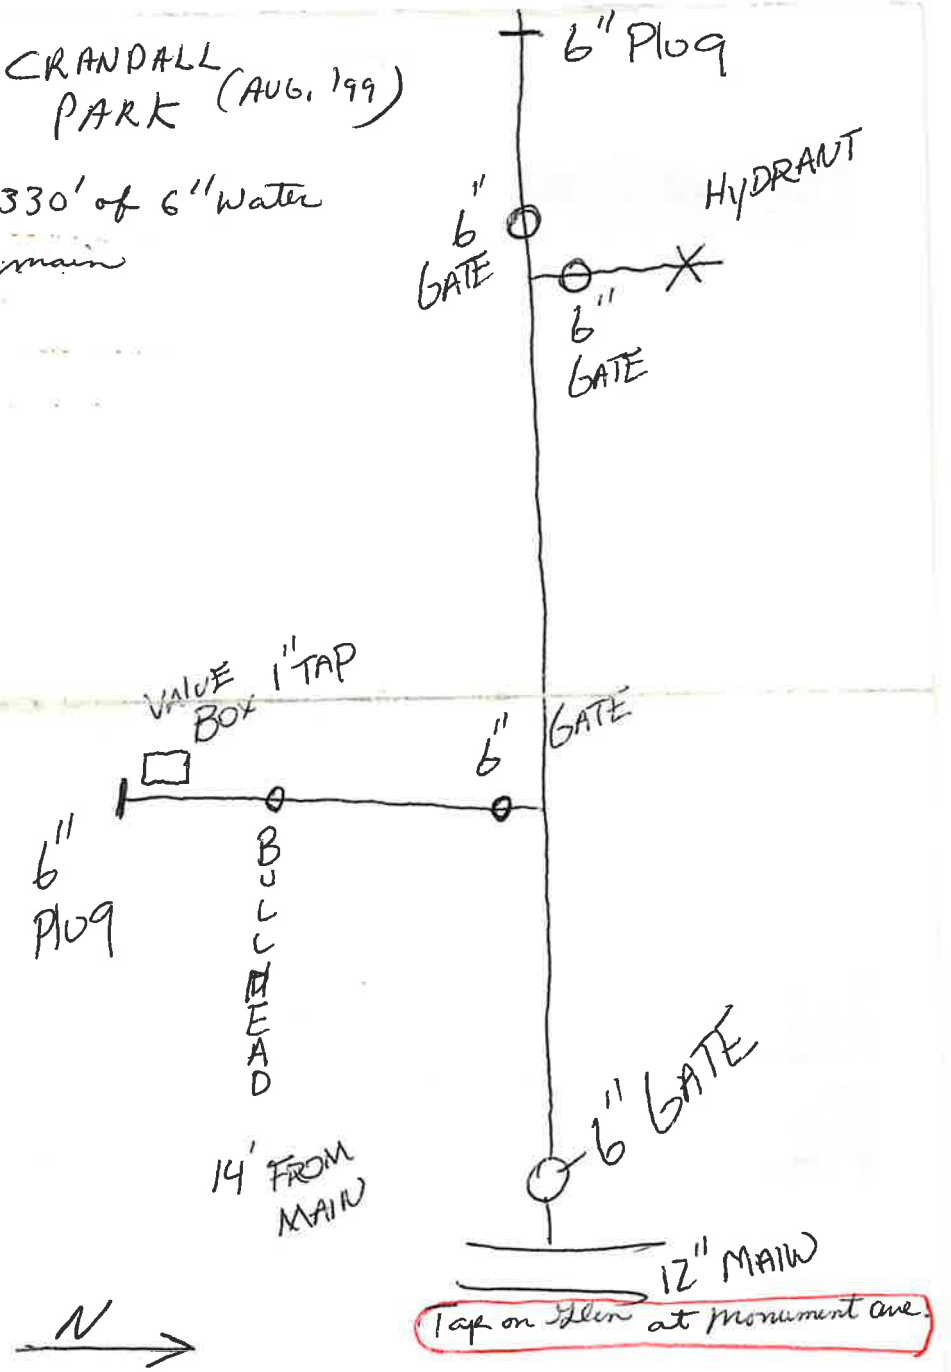 CRANDALL
PARK (AUG. '99)
330' of 6" Water
main
6" Plug
HyDRANT
6"
GATE
6"
GATE
VALVE
BOX
1" TAP
6"
GATE
6"
Plug
BULLHEAD
14' FROM
MAIN
6" GATE
12" MAIN
Tap on Glen at Monument ave.
N